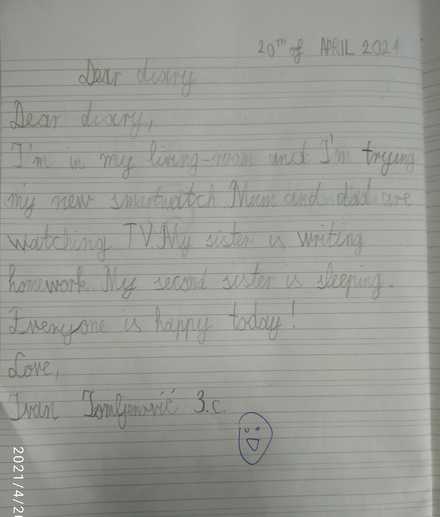 20TH of APRIL 2021
Dear diary
Dear diary,
I'm in my living-room and I'm trying
my new smartwatch. Mum and dad are
watching TV. My sister is writing
homework. My second sister is sleeping.
Everyone is happy today!
Love,
Ivan Tomljenović 3.c.
2021/4/20